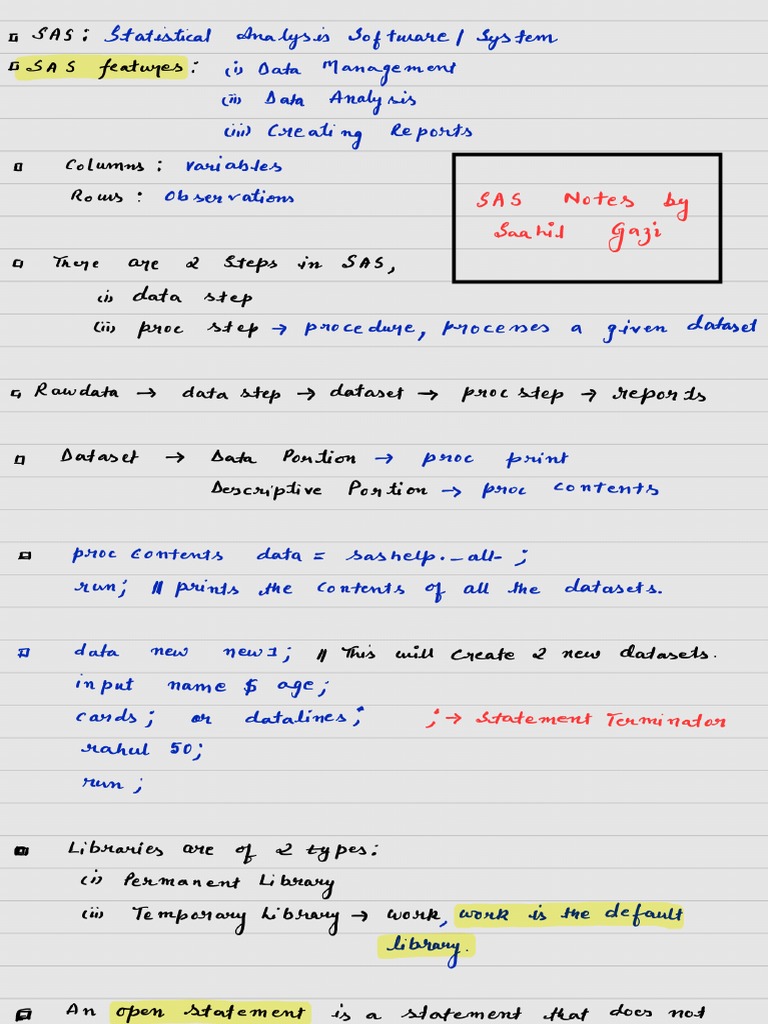 SAS: Statistical Analysis Software / System
SAS features: (i) Data Management
(ii) Data Analysis
(iii) Creating Reports
Columns: Variables
Rows: Observations
SAS Notes by
Saahil Gazi
There are 2 Steps in SAS,
(i) data step
(ii) proc step → procedure, processes a given dataset
Rawdata → data step → dataset → proc step → reports
Dataset → Data Portion → proc print
Descriptive Portion → proc contents
proc contents data = sashelp._all_ ;
run; // prints the contents of all the datasets.
data new new1; // This will create 2 new datasets.
input name $ age;
cards; or datalines; ; → Statement Terminator
rahul 50;
run ;
Libraries are of 2 types:
(i) Permanent Library
(ii) Temporary Library → work, work is the default
library.
An open statement is a statement that does not